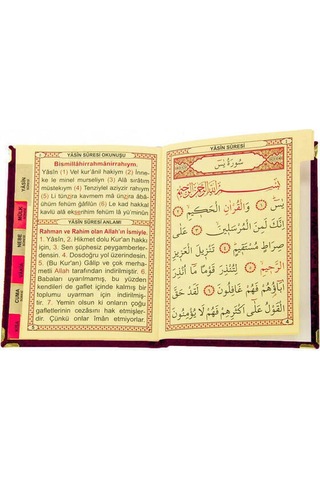 YÂSÎN SÛRESİ OKUNUŞU
Bismillâhirrahmânirrahıym.
Yâsîn (1) Vel kur'ânil hakiym (2) İnne-
ke le minel murseliyn (3) Alâ sırâtim
müstekıym (4) Tenziylel azîyzir rahıym
(5) Li tünzira kavmem mâ ünzira âbâ-
ühüm fehüm gâfilûn (6) Le kad hakkal
kavlü alâ ekserihim fehüm lâ yü'minûn
YÂSÎN SÛRESİ ANLAMI
Rahman ve Rahim olan Allah'ın İsmiyle.
1. Yâsîn, 2. Hikmet dolu Kur'an hakkı
için, 3. Sen şüphesiz peygamberler-
densin. 4. Dosdoğru yol üzerindesin.
5. (Bu Kur'an) Gâlip ve çok merha-
metli Allah tarafından indirilmiştir. 6.
Babaları uyarılmamış, bu yüzden
kendileri de gaflet içinde kalmış bir
toplumu uyarman için indirilmiş-
tir. 7. Yemin olsun ki onların çoğu
gafletlerinin cezasını hak etmişler-
dir. Çünkü onlar iman etmiyorlar.
YÂSÎN
MÜLK
NEBE
CUMA
YÂSÎN SÛRESİ
سُورَةُ يٰسٓ
بِسْمِ اللّٰهِ الرَّحْمٰنِ الرَّحِيمِ
يٰسٓ ١ وَالْقُرْاٰنِ الْحَكِيمِ ٢
اِنَّكَ لَمِنَ الْمُرْسَلِينَ ٣ عَلٰى
صِرَاطٍ مُسْتَقِيمٍ ٤ تَنْزِيلَ الْعَزِيزِ
الرَّحِيمِ ٥ لِتُنْذِرَ قَوْمًا مَٓا اُنْذِرَ
اٰبَٓاؤُ۬هُمْ فَهُمْ غَافِلُونَ ٦ لَقَدْ حَقَّ
الْقَوْلُ عَلٰٓى اَكْثَرِهِمْ فَهُمْ لَا يُؤْمِنُونَ